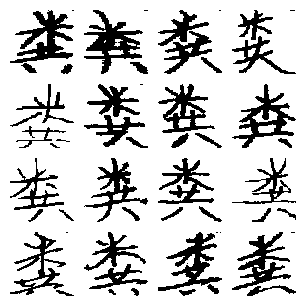 粪粪粪粪
粪粪粪粪
粪粪粪粪
粪粪粪粪